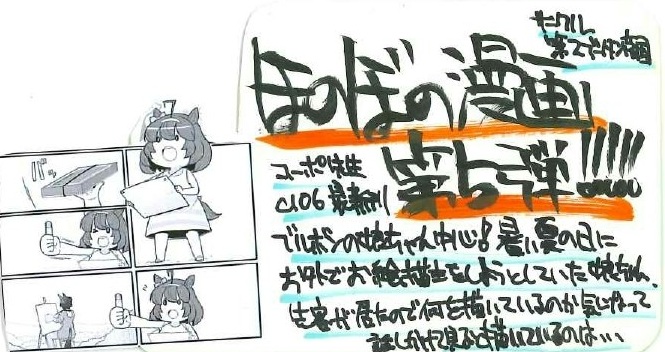 ほのぼの漫画
第5弾!!!!!
コーポ先生
C106 最新刊
デルボンの姉ちゃん中心! 暑い夏の日に
お外でお絵描きをしようとしていた姉さん、
先客が居たので何を描いているのか気になって
話しかけて見ると描いているのは…
バッ